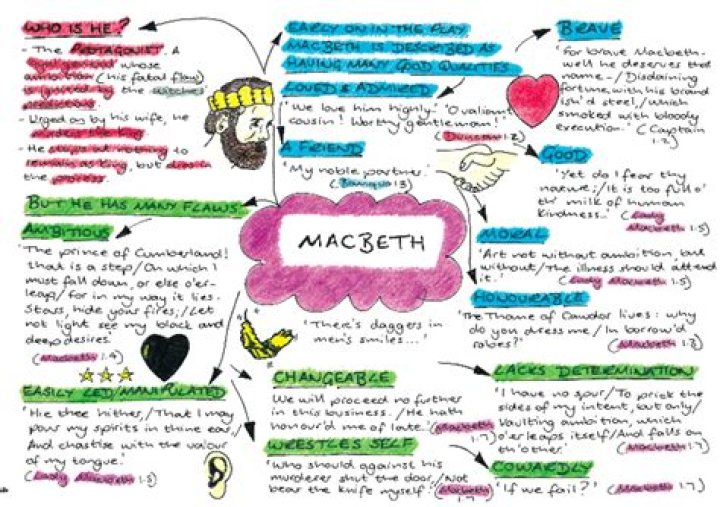 WHO IS HE?
- The PROTAGONIST. A
loyal general whose
ambition (his fatal flaw)
is ignited by the witches'
predictions.
- Urged on by his wife, he
murders the king
- He stops at nothing to
remain as king, but dies in
the process.
EARLY ON IN THE PLAY
MACBETH IS DESCRIBED AS
HAVING MANY GOOD QUALITIES
LOVED & ADMIRED
'We love him highly.' 'O valiant
cousin! Worthy gentleman!'
(Duncan 1.2)
A FRIEND
'My noble partner.'
(Banquo 1.3)
BRAVE
'For brave Macbeth-
well he deserves that
name-/Disdaining
fortune, with his brand
ish'd steel,/which
smoked with bloody
execution.' (Captain
1.2)
GOOD
'Yet do I fear thy
nature;/It is too full o'
th' milk of human
kindness.' (Lady
Macbeth 1.5)
MORAL
'Art not without ambition, but
without/The illness should attend
it.' (Lady Macbeth 1.5)
HONOURABLE
'The Thane of Cawdor lives: why
do you dress me/In borrow'd
robes?' (Macbeth 1.3)
MACBETH
BUT HE HAS MANY FLAWS
AMBITIOUS
'The prince of Cumberland!
that is a step/On which I
must fall down, or else o'er-
leap/for in my way it lies.
Stars, hide your fires;/Let
not light see my black and
deep desires.
(Macbeth 1.4)
'There's daggers in
men's smiles...'
EASILY LED/MANIPULATED
'Hie thee hither,/That I may
pour my spirits in thine ear,/
And chastise with the valour
of my tongue.'
(Lady Macbeth 1.5)
CHANGEABLE
We will proceed no further
in this business./He hath
honour'd me of late.' (Macbeth
1.7)
WRESTLES SELF
'Who should against his
murderer shut the door,/Not
bear the knife myself.' (Macbeth
1.7)
LACKS DETERMINATION
'I have no spur/To prick the
sides of my intent, but only/
Vaulting ambition, which
o'erleaps itself/And falls on
th'other.' (Macbeth 1.7)
COWARDLY
'If we fail?' (Macbeth 1.7)